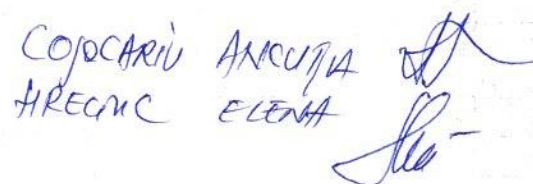 COJOCARIU ANCUȚA
HRECIUC ELENA